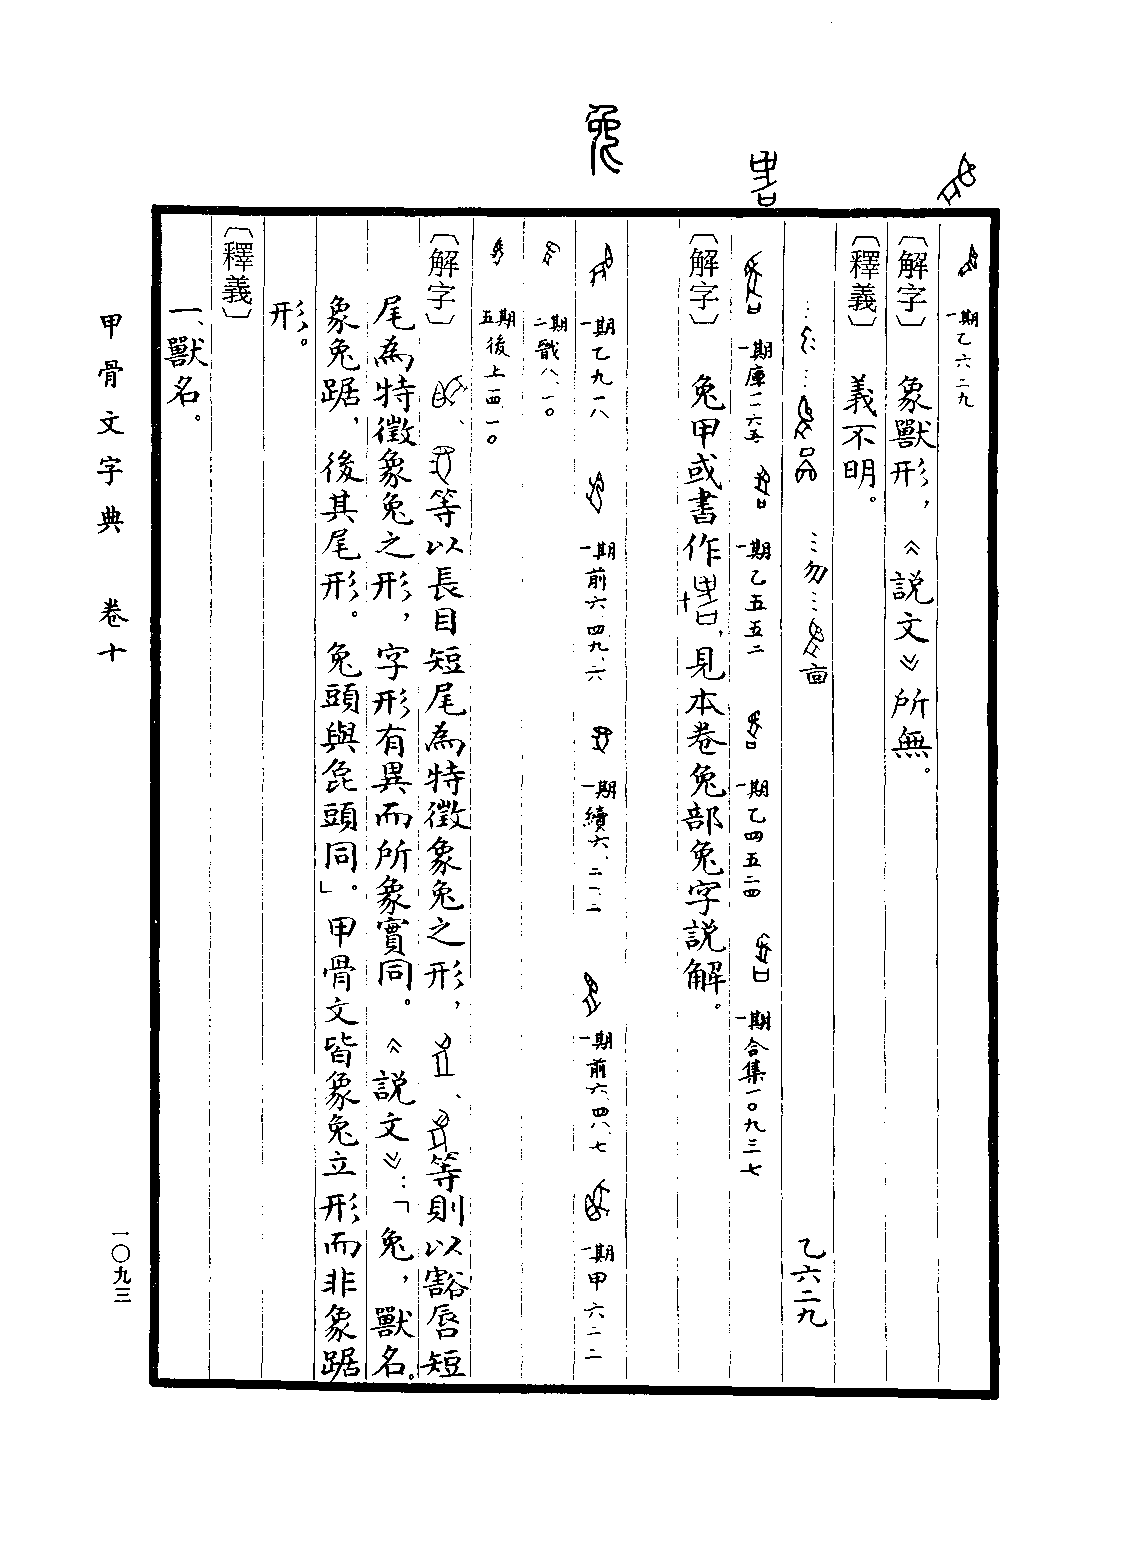 一期乙六二九
〔解字〕 象獸形，《説文》所無。
〔釋義〕 義不明。
…… 勿… 乙六二九
一期庫一二六五 一期乙五五二 一期乙四五二四 一期合集一〇九三七
〔解字〕 兔甲或書作，見本卷兔部兔字説解。
兔
一期乙九一八 一期前六、四九、六 一期續六、二一、二 一期前六、四八、七 一期甲六二二
二期戩八、一〇
五期後上一四一〇
〔解字〕 、等以長目短尾為特徵象兔之形，、等則以豁唇短
尾為特徵象兔之形，字形有異而所象實同。《説文》：「兔，獸名。
象兔踞，後其尾形。兔頭與㲋頭同」。甲骨文皆象兔立形而非象踞
形。
〔釋義〕
一、獸名。
甲骨文字典 卷十
一〇九三